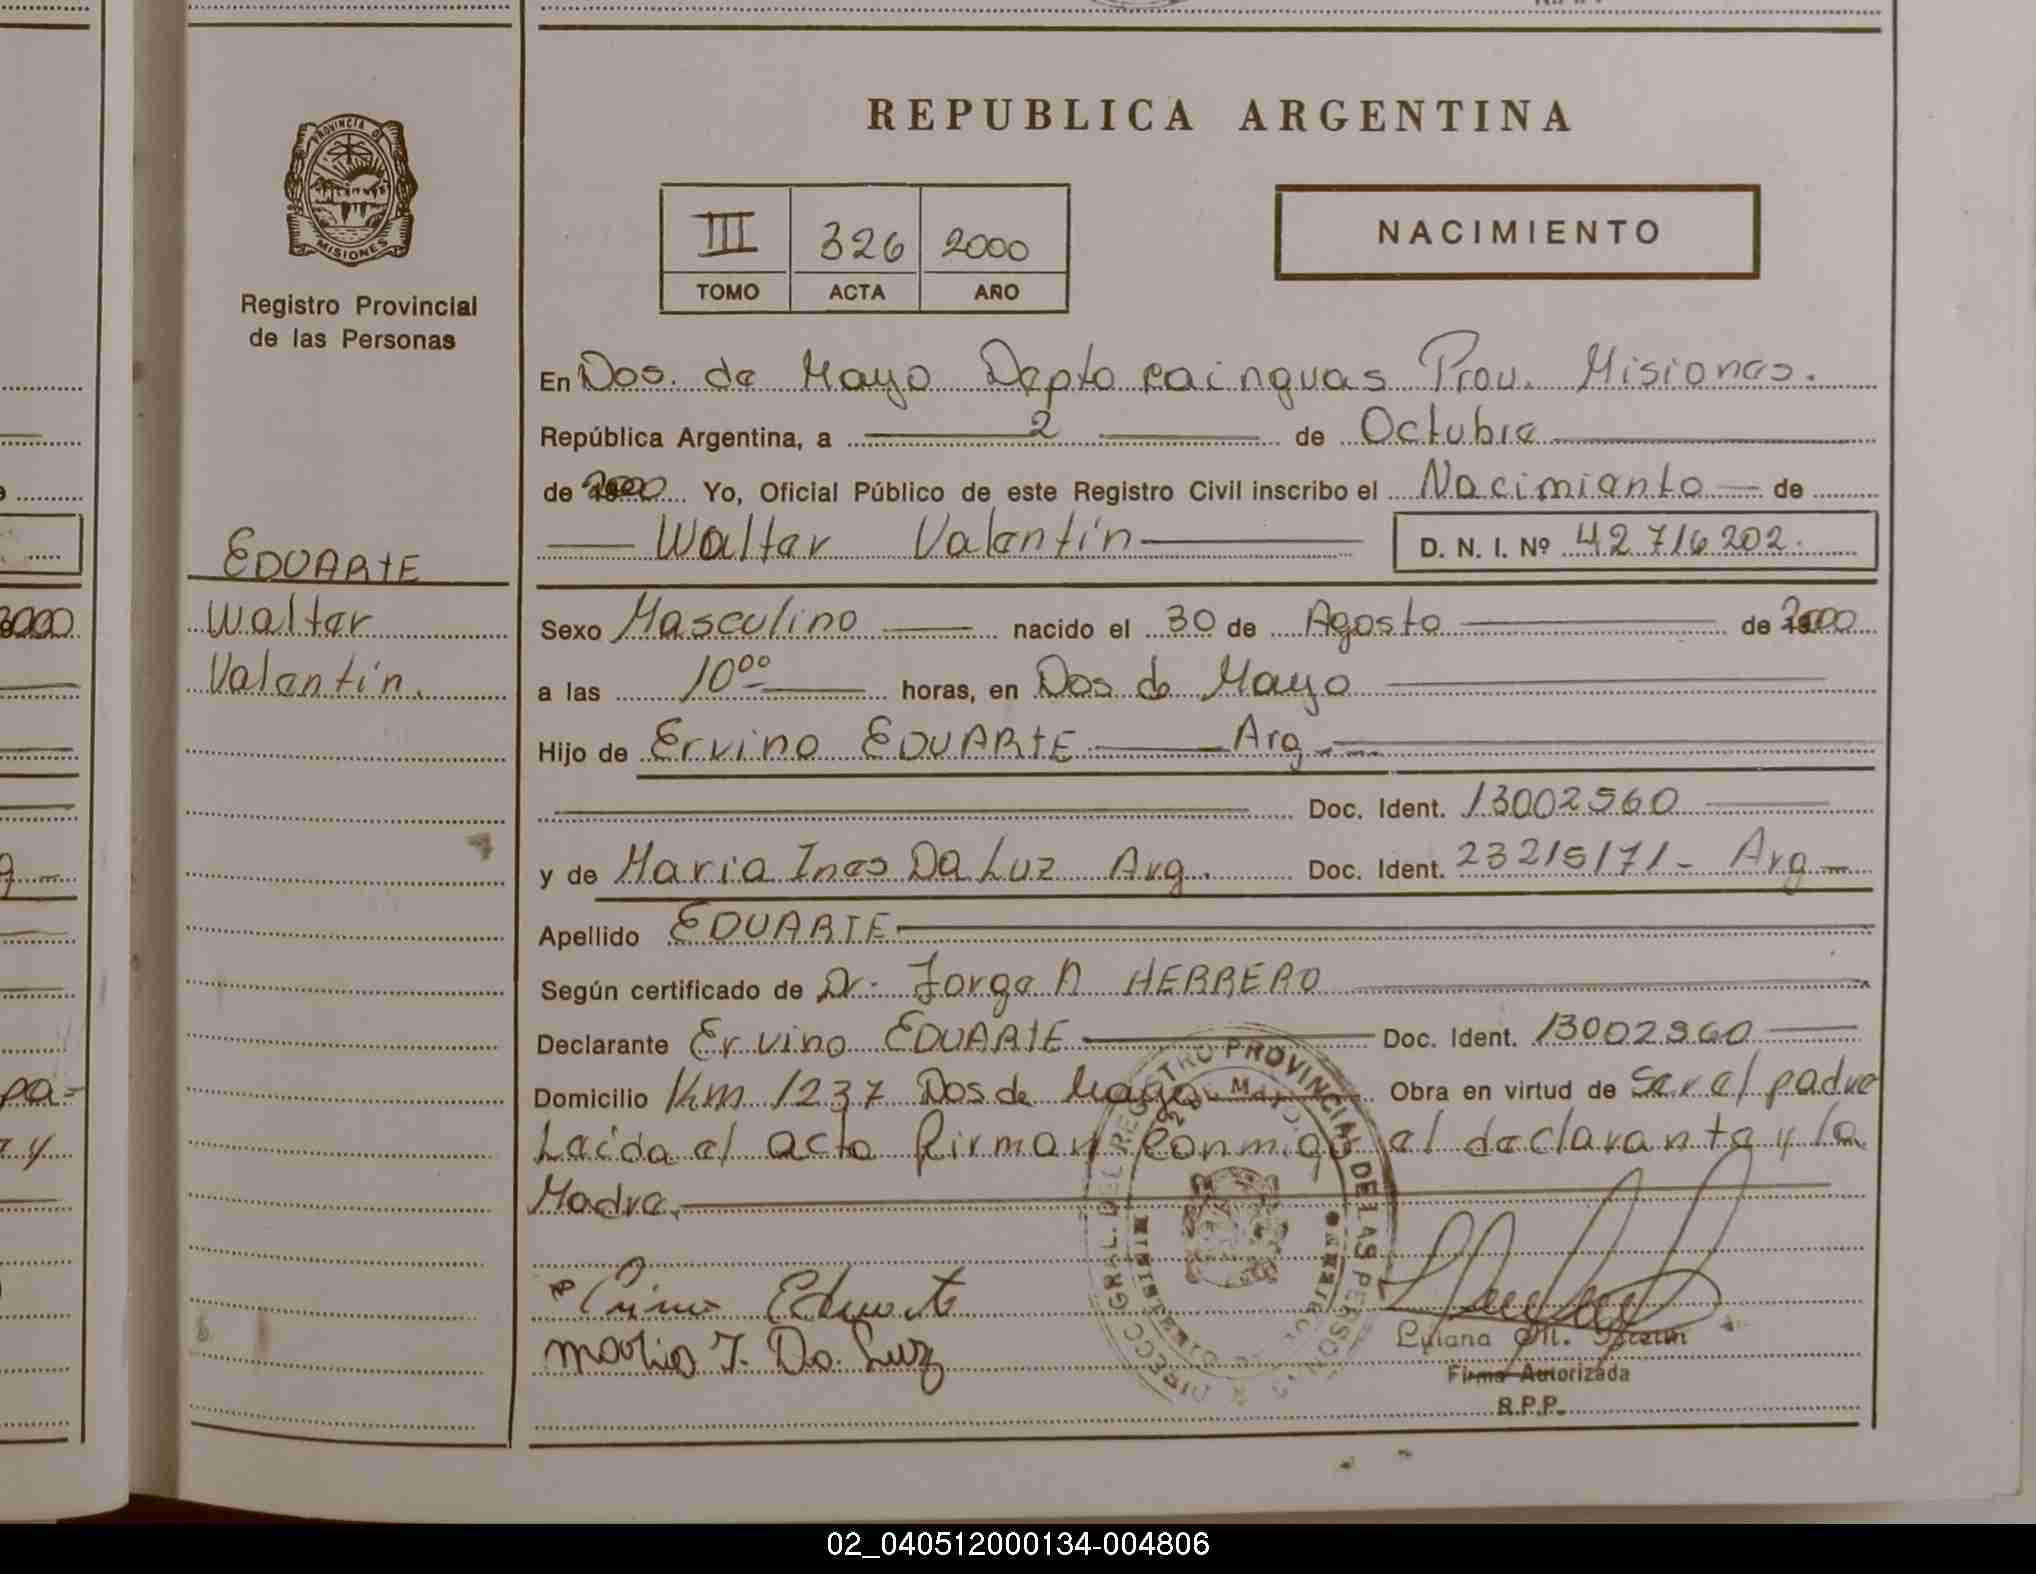 PROVINCIA DE
MISIONES
Registro Provincial
de las Personas
EDUARTE
Walter
Valentín.
REPUBLICA ARGENTINA
III 326 2000
TOMO ACTA AÑO
NACIMIENTO
En Dos de Mayo Depto Cainguas Prov. Misiones.
República Argentina, a 2 de Octubre
de 2000 Yo, Oficial Público de este Registro Civil inscribo el Nacimiento de
Walter Valentín D. N. I. Nº 42716202.
Sexo Masculino nacido el 30 de Agosto de 2000
a las 10⁰⁰ horas, en Dos de Mayo
Hijo de Ervino EDUARTE Arg.
Doc. Ident. 13002960
y de Maria Ines Da Luz Arg. Doc. Ident. 23215171 - Arg
Apellido EDUARTE
Según certificado de Dr. Jorge A HERRERO
Declarante Ervino EDUARTE Doc. Ident. 13002960
Domicilio Km 1237 Dos de Mayo Obra en virtud de Ser el padre
Leída el acta firman conmigo el declarante y la
Madre.
Eduarte
Maria I. Da Luz
DIRECC. GRAL. DEL REGISTRO PROVINCIAL DE LAS PERSONAS
Firma Autorizada
R.P.P.
3000
pa-
y
02_040512000134-004806